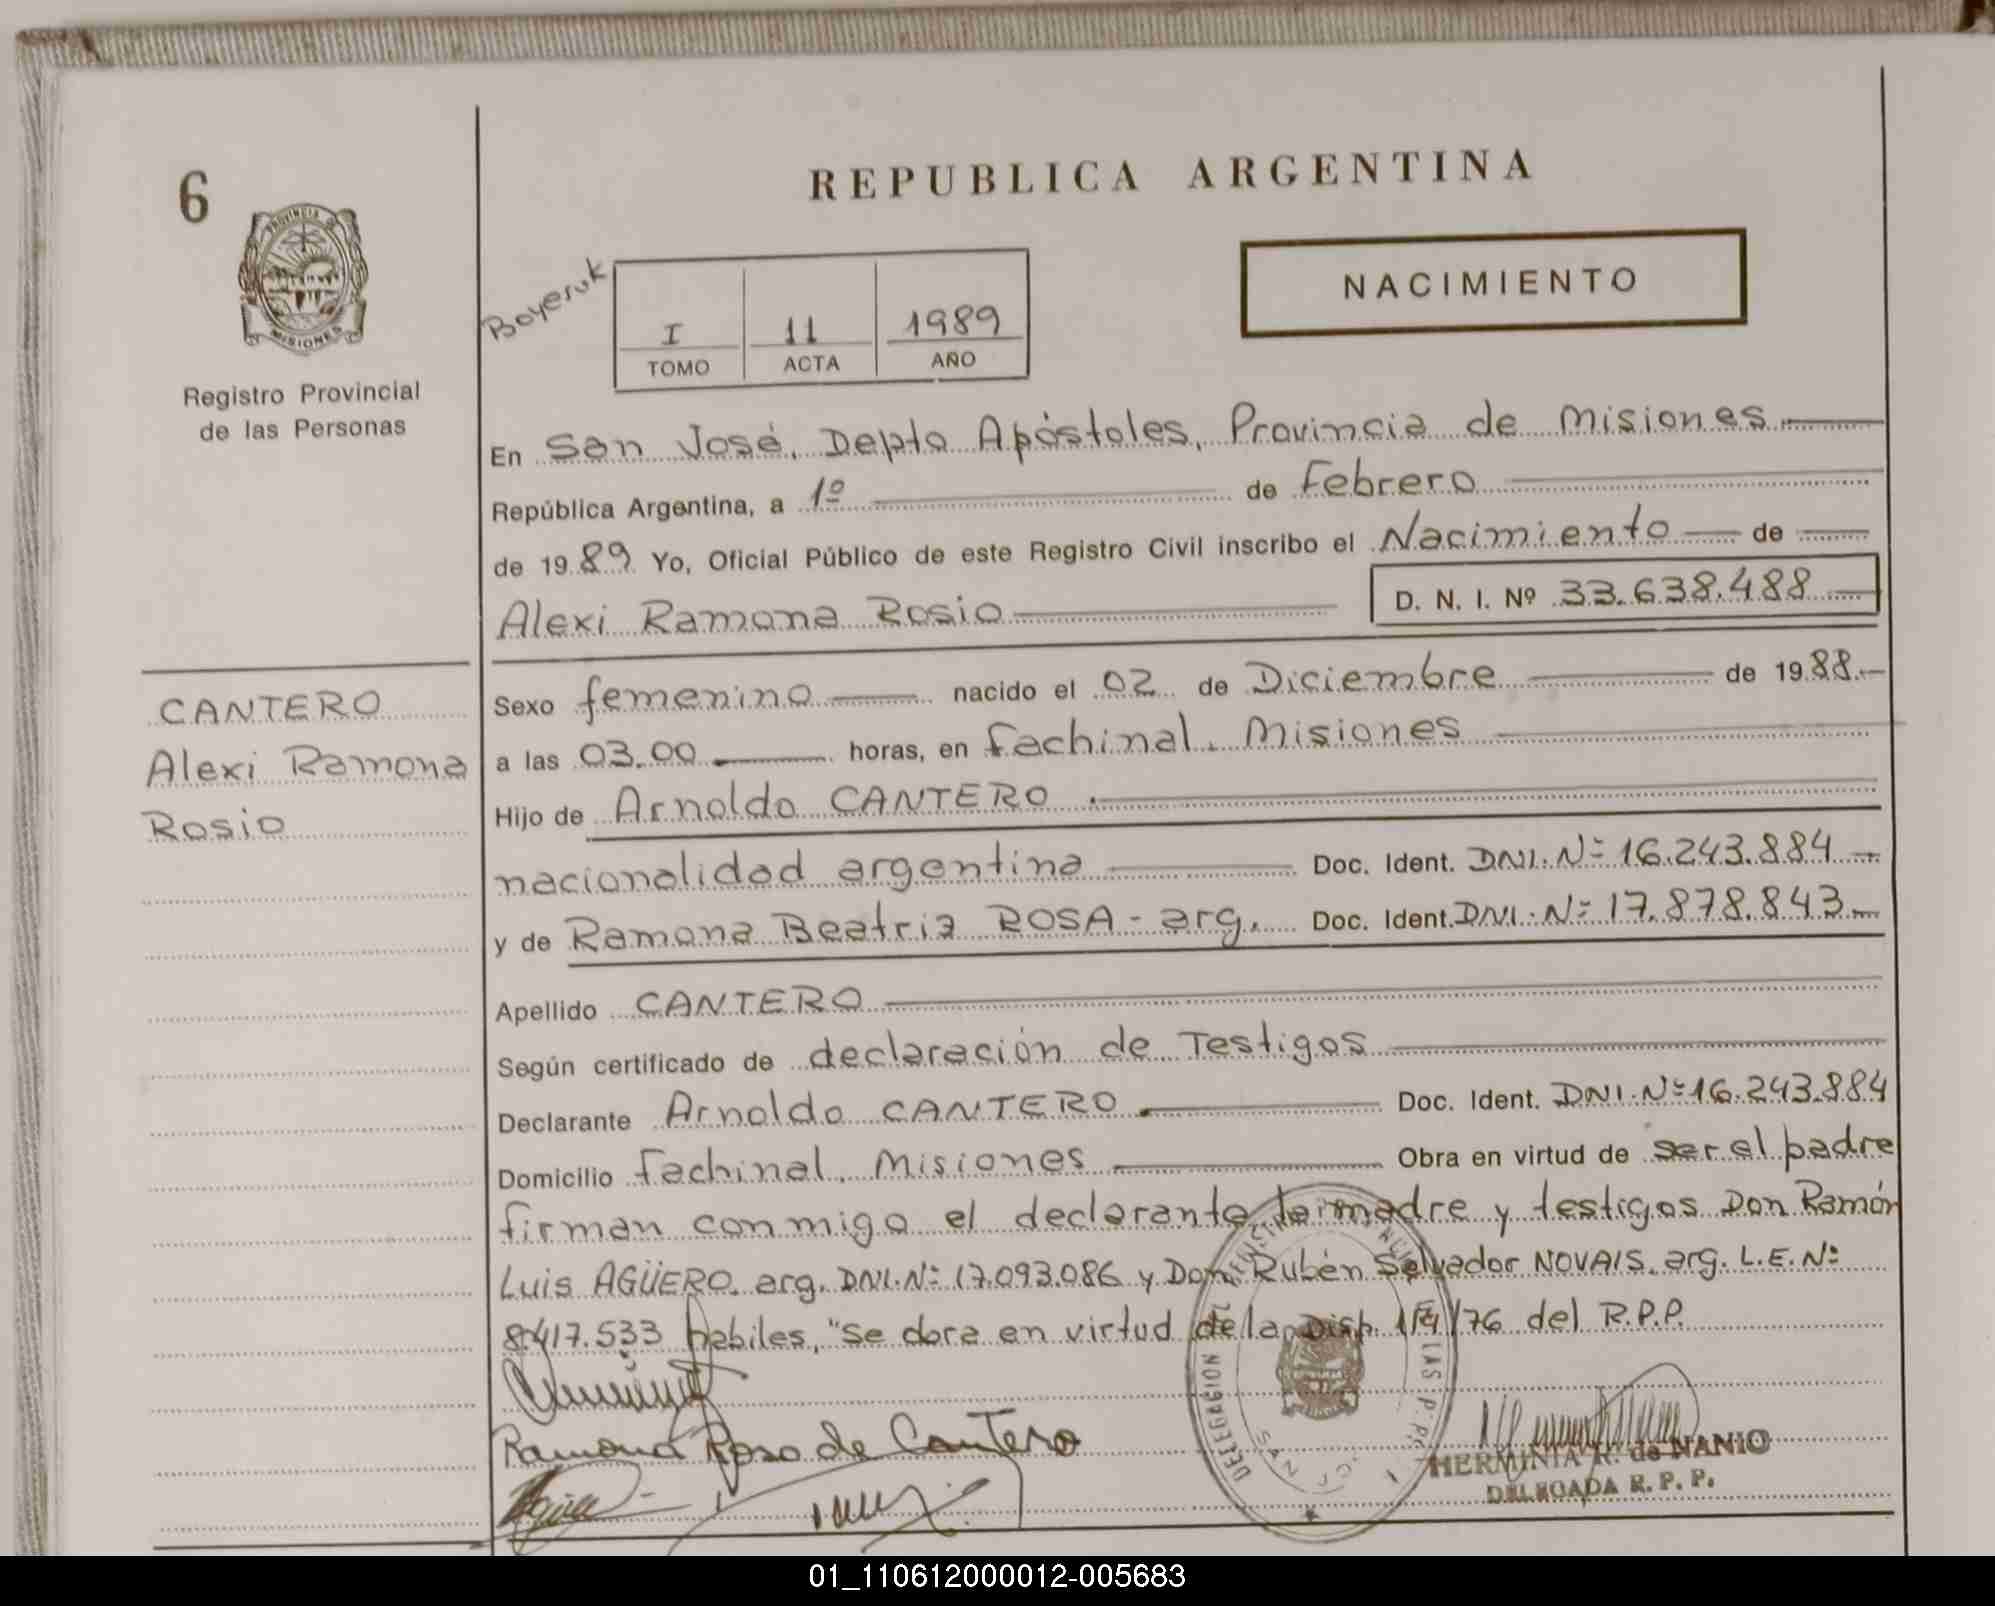 6
REPUBLICA ARGENTINA
PROVINCIA DE
MISIONES
Registro Provincial
de las Personas
Boyeruk
I 11 1989
TOMO ACTA AÑO
NACIMIENTO
En San José, Depto Apóstoles, Provincia de Misiones
República Argentina, a 1º de Febrero
de 1989 Yo, Oficial Público de este Registro Civil inscribo el Nacimiento de
Alexi Ramona Rosio D. N. I. Nº 33.638.488
CANTERO
Alexi Ramona
Rosio
Sexo femenino nacido el 02 de Diciembre de 1988.-
a las 03.00 horas, en Fachinal, Misiones
Hijo de Arnoldo CANTERO
nacionalidad argentina Doc. Ident. DNI. Nº 16.243.884
y de Ramona Beatriz ROSA - arg. Doc. Ident. DNI. Nº 17.878.843
Apellido CANTERO
Según certificado de declaración de Testigos
Declarante Arnoldo CANTERO Doc. Ident. DNI. Nº 16.243.884
Domicilio Fachinal, Misiones Obra en virtud de ser el padre
firman conmigo el declarante, la madre y testigos Don Ramón
Luis AGÜERO. arg. DNI. Nº 17.093.086 y Don Rubén Salvador NOVAIS. arg. L.E. Nº
8.417.533 habiles, "Se dora en virtud de la Disp. 1/4/76 del R.P.P.
Ramona Rosa de Cantero
DELEGACION
LAS P. P.
HERMINIA R. de NANIO
DELEGADA R. P. P.
01_110612000012-005683